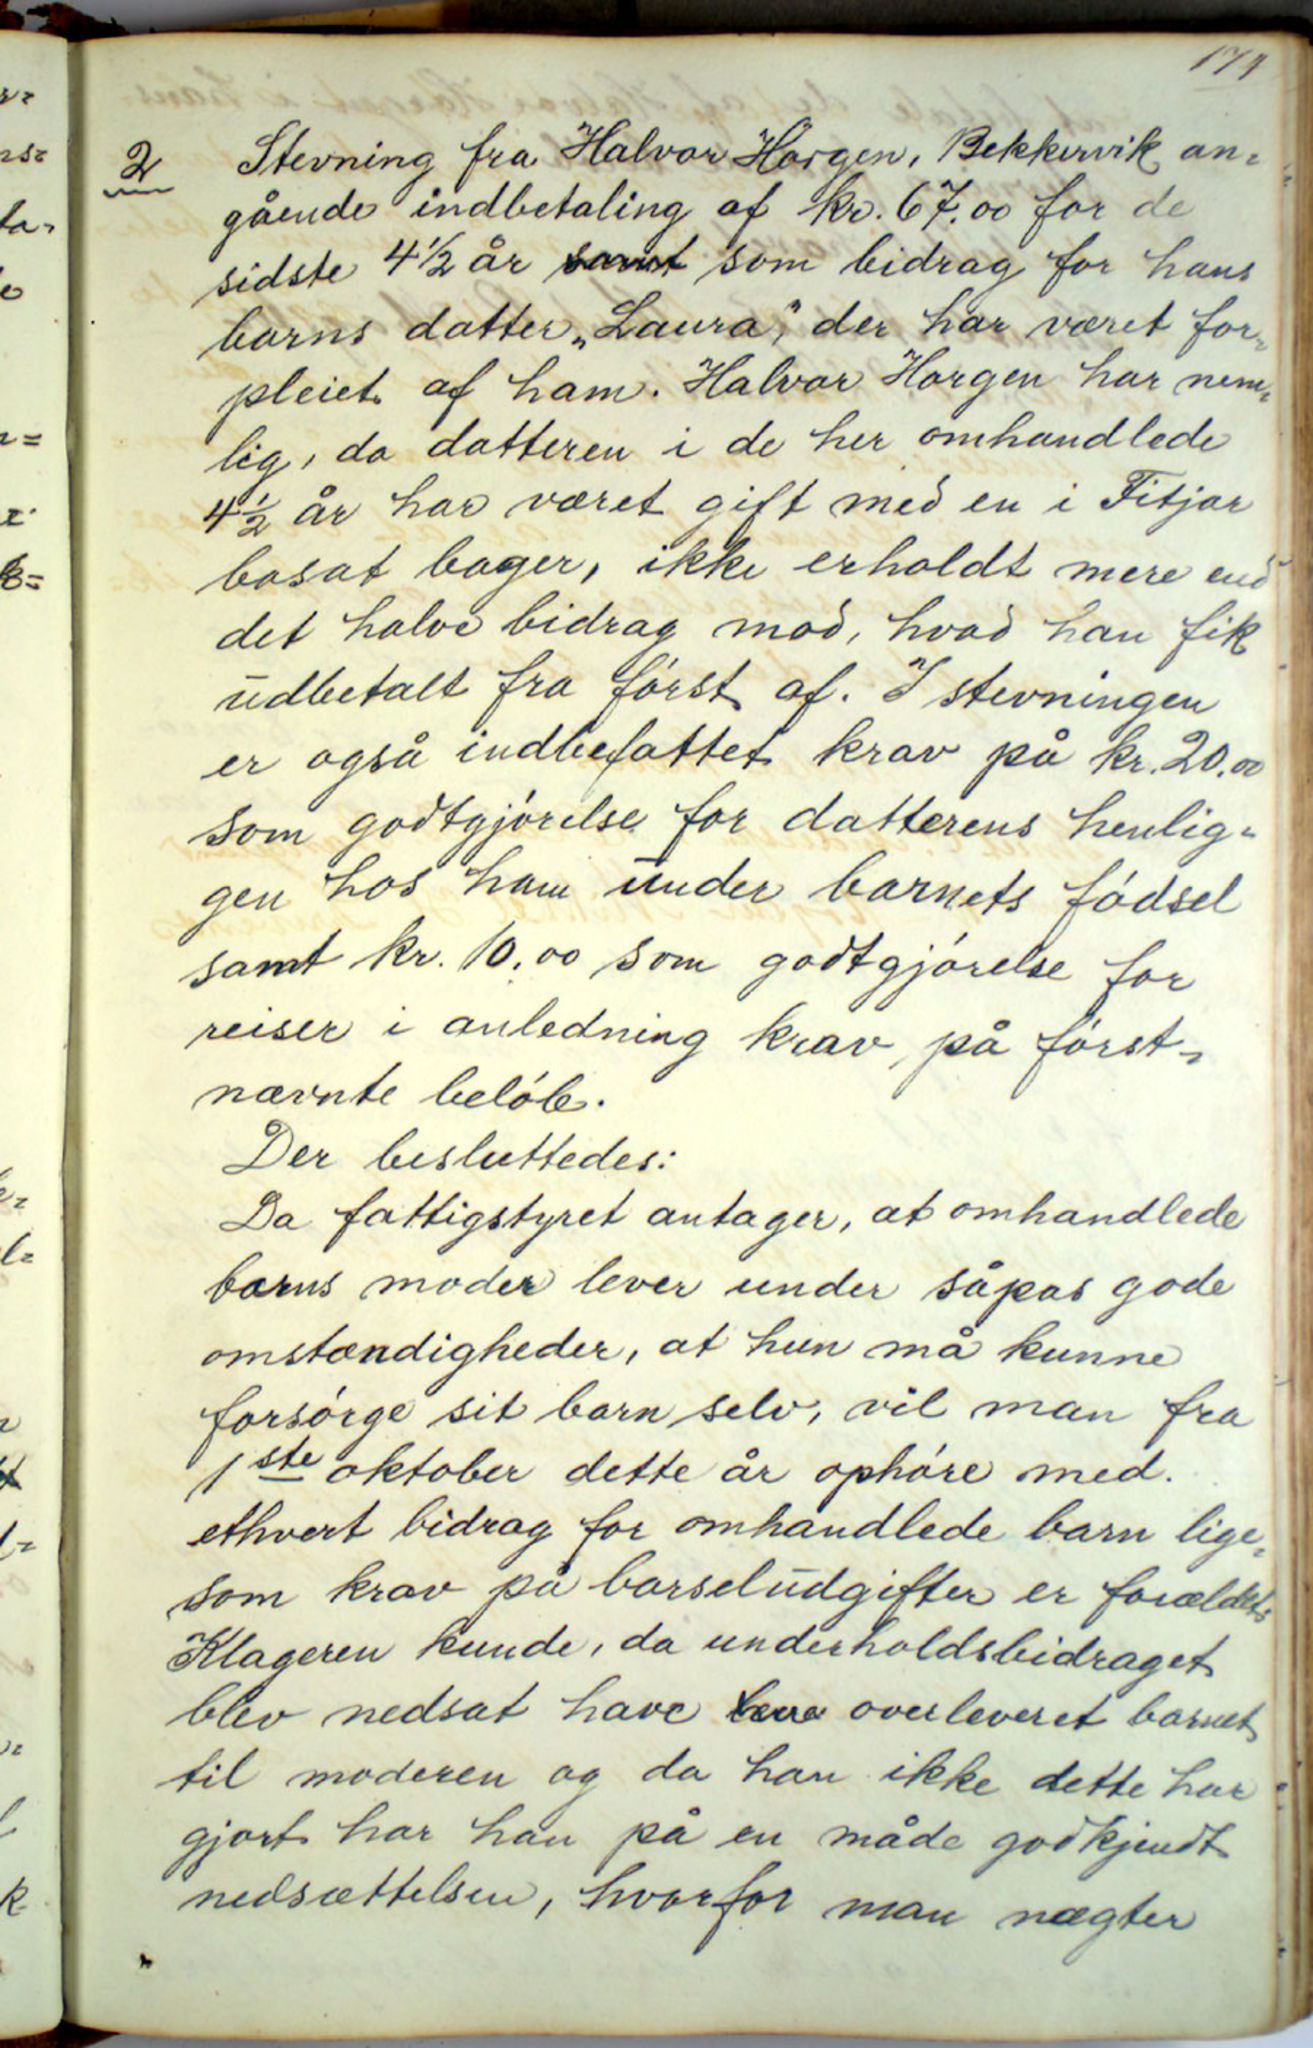 2 Stevning fra Halvor Horgen, Bekkervik an-
gående indbetaling af kr. 67.00 for de
sidste 4½ år samt som bidrag for hans
barns datter „Laura", der har været for-
pleiet af ham. Halvor Horgen har nem-
lig, da datteren i de her omhandlede
4½ år har været gift med en i Fitjar
bosat bager, ikke erholdt mere end
det halve bidrag mod, hvad han fik
udbetalt fra først af. I stevningen
er også indbefattet krav på kr. 20.00
som godtgjørelse for datterens henlig-
gen hos ham under barnets fødsel
samt kr. 10.00 som godtgjørelse for
reiser i anledning krav på først-
nævnte beløb.
Der besluttedes:
Da fattigstyret antager, at omhandlede
barns moder lever under såpas gode
omstændigheder, at hun må kunne
forsørge sit barn selv, vil man fra
1ste oktober dette år ophøre med
ethvert bidrag for omhandlede barn lige-
som krav på barseludgifter er forældet.
Klageren kunde, da underholdsbidraget
blev nedsat have overleveret barnet
til moderen og da han ikke dette har
gjort har han på en måde godkjendt
nedsættelsen, hvorfor man nægter